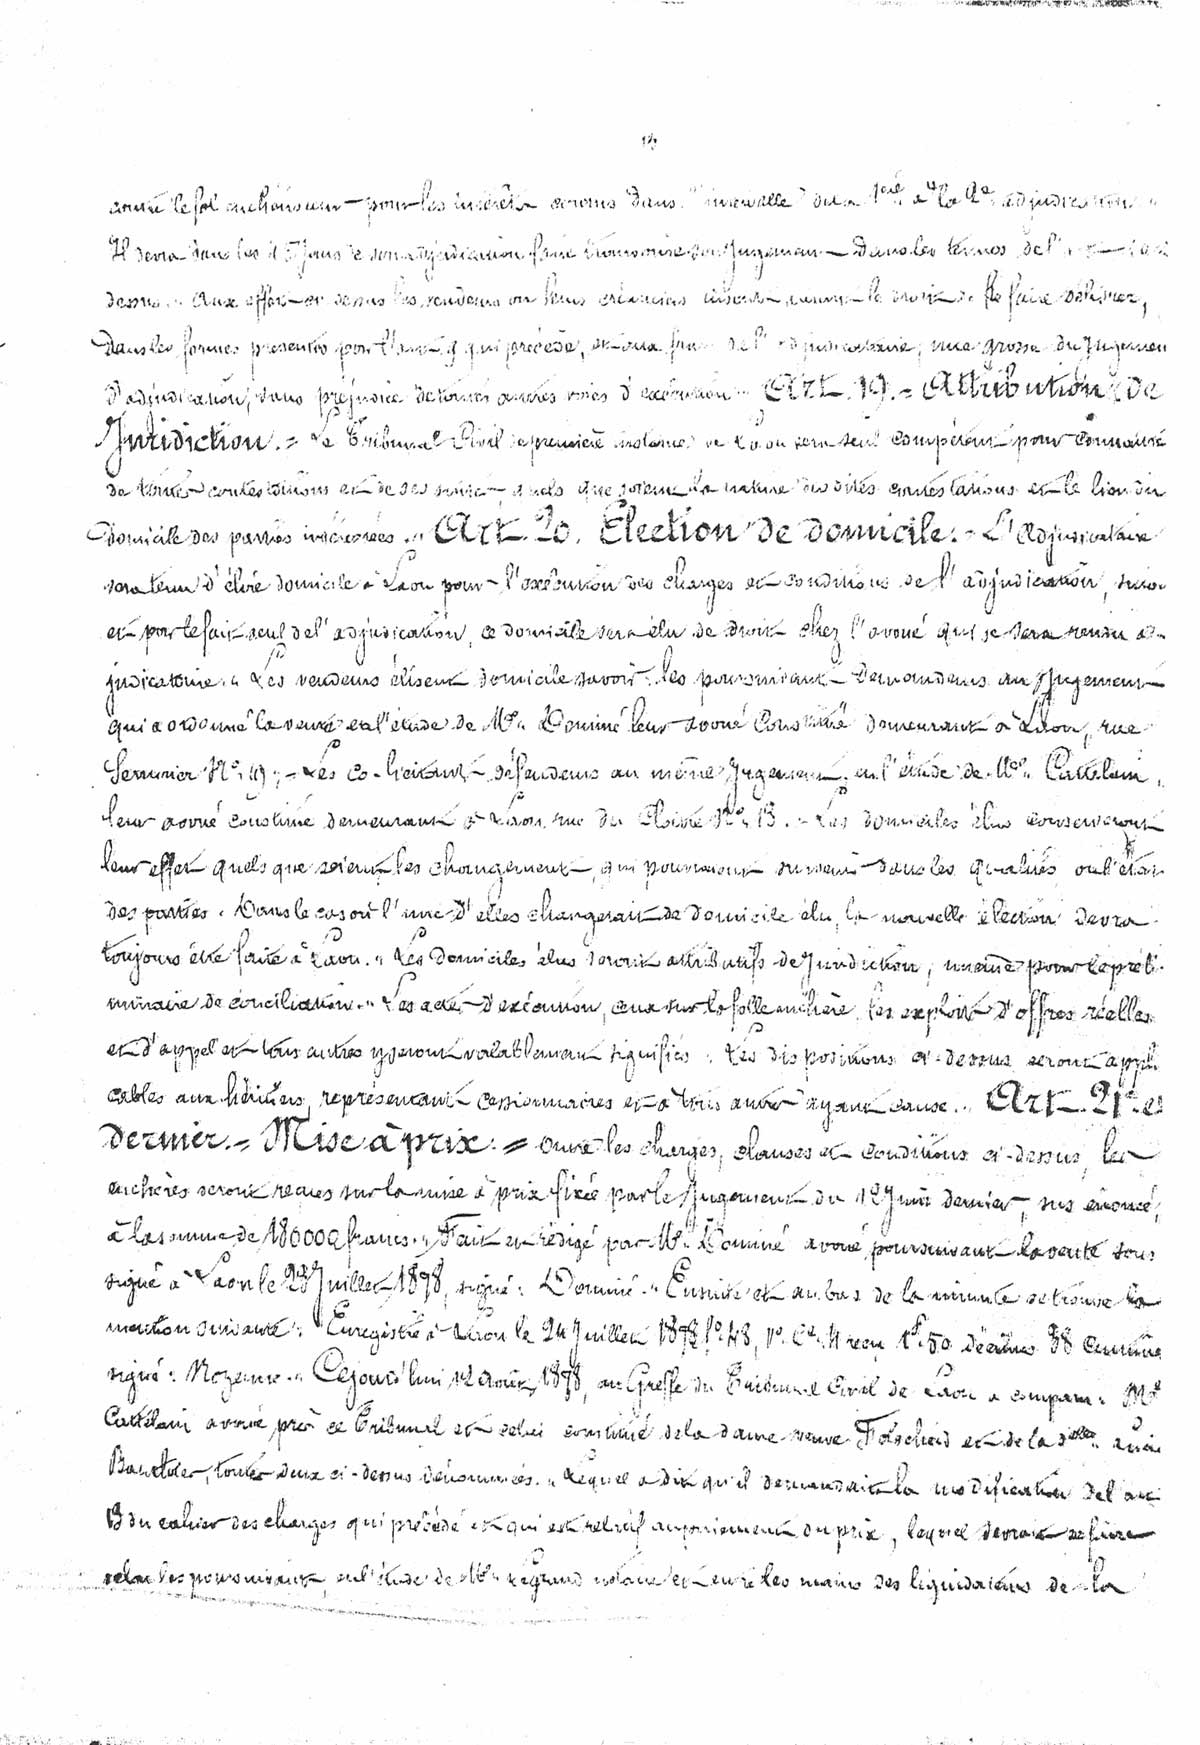 contre le fol enchérisseur pour les intérêts courus dans l'intervalle de la 1ere à la 2e adjudication
Il devra dans les 15 jours de son adjudication faire transcrire son jugement dans les termes de l'
dessus. Aux effets ci dessus les vendeurs ou leurs créanciers auront le droit de se faire délivrer,
dans les formes prescrites par l'art 9 qui précède, et aux frais de l'adjudicataire, une grosse du jugement
d'adjudication, sans préjudice de toutes autres voies d'exécution. Art. 19. = Attribution de
Juridiction. = Le Tribunal Civil de première instance de Laon sera seul compétent pour connaitre
de toutes contestations et de ses suites quels que soient la nature des dites contestations et le lieu du
domicile des parties intéressées. Art. 20. Élection de domicile. = L'adjudicataire
sera tenu d'élire domicile à Laon pour l'exécution des charges et conditions de l'adjudication, sinon
et par le fait seul de l'adjudication, ce domicile sera élu de droit chez l'avoué qui se sera rendu ad-
judicataire. Les vendeurs élisent domicile savoir: les poursuivants demandeurs au Jugement
qui a ordonné la vente en l'étude de Me Dominé leur avoué constitué demeurant à Laon, rue
Serrurier No 49; = Les co-licitants défendeurs au même jugement en l'étude de Me Cattelain,
leur avoué constitué demeurant à Laon rue du Cloitre No 13. = Les domiciles élus conserveront
leur effet quels que soient les changements qui pourraient survenir dans les qualités ou l'état
des parties. Dans le cas où l'une d'elles changerait de domicile élu, la nouvelle élection devra
toujours être faite à Laon. Les domiciles élus seront attributifs de Juridiction, même pour le préli-
minaire de conciliation. Les actes d'exécution, ceux sur la folle enchère, les exploits d'offres réelles
et d'appel et tous autres y seront valablement signifiés. Les dispositions ci-dessus seront appli-
cables aux héritiers, représentants cessionnaires et à tous autres ayant cause. Art. 21e et
dernier. = Mise à prix. = Outre les charges, clauses et conditions ci-dessus, les
enchères seront reçues sur la mise à prix fixée par le Jugement du 12 Juin dernier, sus énoncé,
à la somme de 180000 francs. Fait et rédigé par Me Dominé avoué, poursuivant la vente sous
signé à Laon le 23 Juillet 1878, signé: Dominé. Ensuite et au bas de la minute se trouve la
mention suivante: Enregistré à Laon le 24 Juillet 1878 fo 48, Vo Ce 4 reçu 1f50 décimes 38 centimes
signé: Cejourd'hui 12 Août 1878, au Greffe du Tribunal Civil de Laon a comparu: Me
Cattelain avoué près ce Tribunal et celui constitué de la dame veuve et de la delle
toutes deux ci-dessus dénommées. Lequel a dit qu'il demandait la modification de l'art
13 du cahier des charges qui précède et qui est relatif au paiement du prix, lequel devrait se faire
selon les poursuivants, en l'étude de Me Legrand notaire et entre les mains des liquidateurs de la